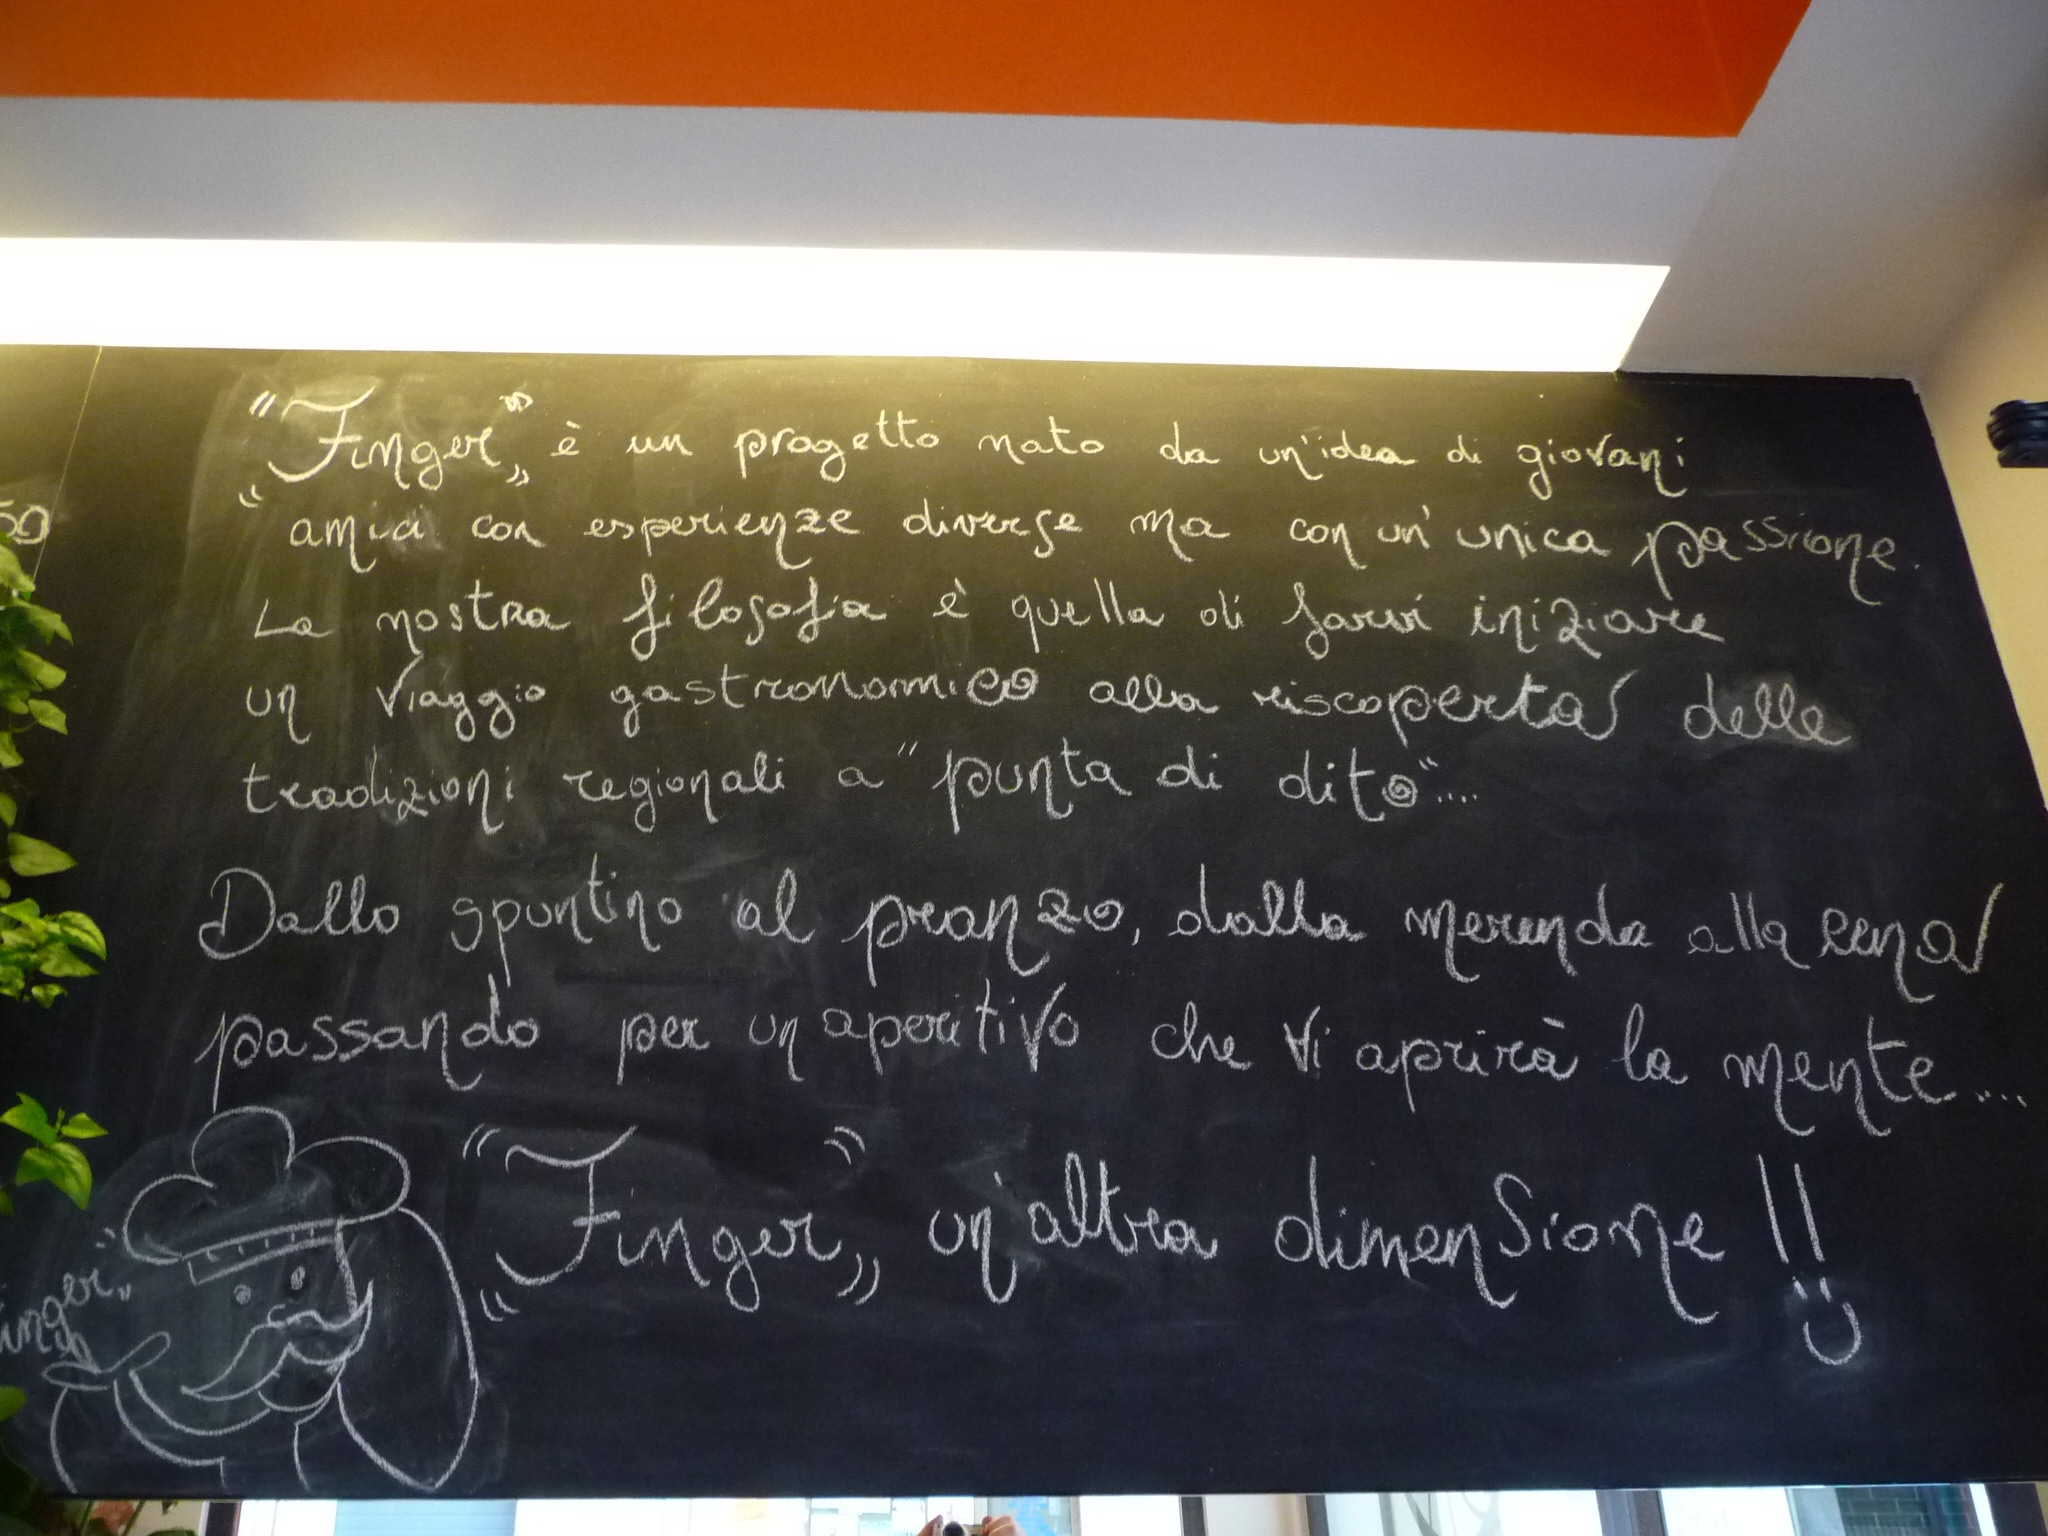 "Finger" è un progetto nato da un'idea di giovani
amici con esperienze diverse ma con un'unica passione.
La nostra filosofia è quella di farvi iniziare
un viaggio gastronomico alla riscoperta delle
tradizioni regionali a "punta di dito"....
Dallo spuntino al pranzo, dalla merenda alla cena
passando per un aperitivo che vi aprirà la mente....
"Finger" un'altra dimensione !!